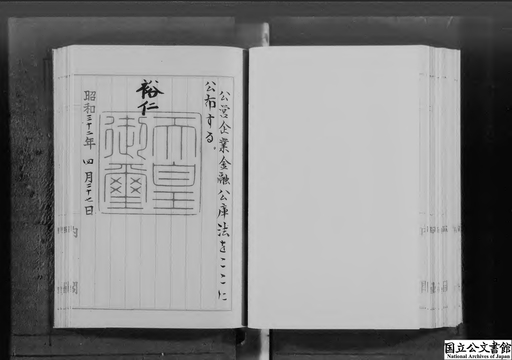 公営企業金融公庫法をここに
公布する。
裕仁
天皇
御璽
昭和三十二年四月二十七日
内閣
国立公文書館
National Archives of Japan